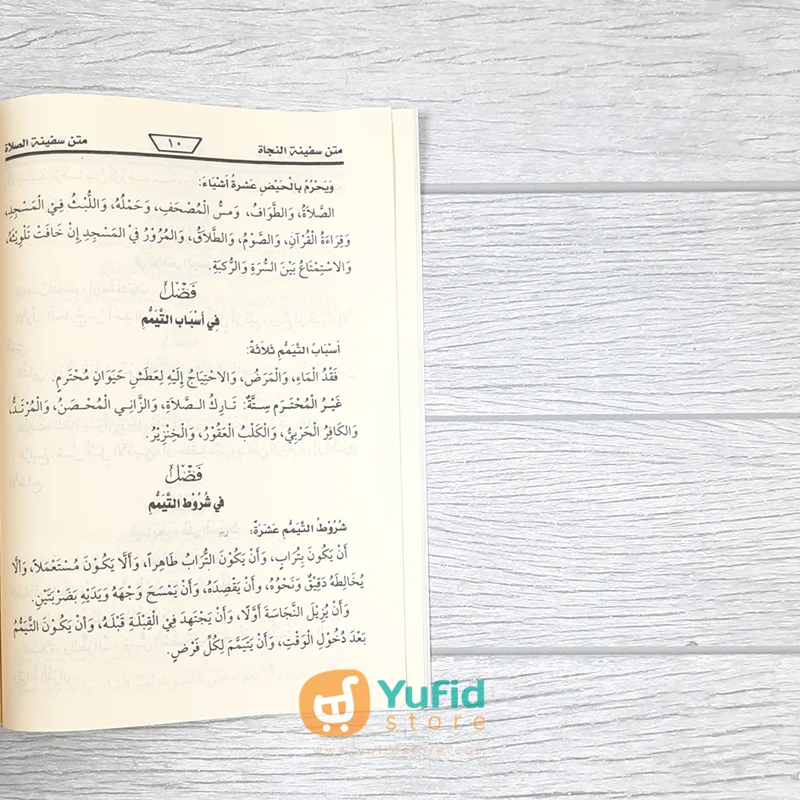 متن سفينة النجاة
١٠
متن سفينة الصلاة
وَيَحْرُمُ بِالْحَيْضِ عَشَرَةُ أَشْيَاءَ:
الصَّلَاةُ، وَالطَّوَافُ، وَمسُّ الْمُصْحَفِ، وَحَمْلُهُ، وَاللُّبْثُ فِيْ الْمَسْجِدِ،
وَقِرَاءَةُ الْقُرْآنِ، وَالصَّوْمُ، وَالطَّلَاقُ، وَالمُرُوْرُ فِيْ الْمَسْجِدِ إِنْ خَافَتْ تَلْوِيْثَهُ،
وَالاسْتِمْتَاعُ بَيْنَ السُّرَةِ وَالرُّكبَةِ.
فَصْلٌ
فِي أَسْبَابِ التَّيَمُّمِ
أَسْبَابُ التَّيَمُّمِ ثَلَاثَةٌ:
فَقْدُ الْمَاءِ، وَالْمَرَضُ، وَالاحْتِيَاجُ إِلَيْهِ لِعَطَشِ حَيَوَانٍ مُحْتَرمٍ.
غَيْرُ الْمُحْتَرَمِ سِتَّةٌ: تَارِكُ الصَّلَاةِ، وَالزَّانِي الْمُحْصَنُ، وَالْمُرْتَدُّ،
وَالكَافِرُ الْحَرْبِيُّ، وَالْكَلْبُ الْعَقُوْرُ، وَالْخِنْزِيْرُ.
فَصْلٌ
فِي شُرُوْطِ التَّيَمُّمِ
شُرُوْطُ التَّيَمُّمِ عَشَرَةٌ:
أَنْ يَكُونَ بِتُرَابٍ، وَأَنْ يَكُوْنَ التُّرَابُ طَاهِراً، وَأَلَّا يَكُوْنَ مُسْتَعْمَلاً، وَأَلَّا
يُخَالِطَهُ دَقِيْقٌ وَنَحْوُهُ، وَأنْ يَقْصِدَهُ، وَأَنْ يَمْسَحَ وَجْهَهُ وَيَدَيْهِ بِضَرْبَتَيْنِ.
وَأَنْ يُزِيْلَ النَّجَاسَةَ أَوَّلًا، وَأَنْ يَجْتَهِدَ فِيْ الْقِبْلَةِ قَبْلَهُ، وَأَنْ يَكُوْنَ التَّيَمُّمُ
بَعْدَ دُخُوْلِ الْوَقْتِ، وَأَنْ يَتَيَمَّمَ لِكُلِّ فَرْضٍ.
Yufid
store
www.yufidstore.com